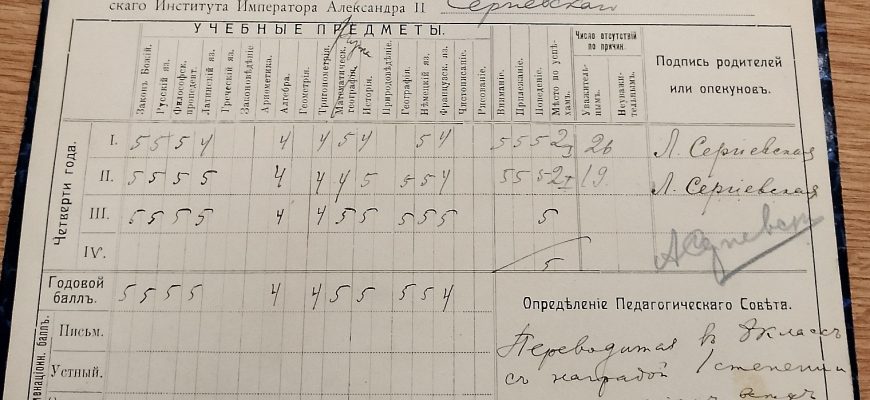 скаго Института Императора Александра II Сергiевскаи
УЧЕБНЫЕ ПРЕДМЕТЫ.
Законъ Божій.
Русскій яз.
Философск. пропедевт.
Латинскій яз.
Греческій яз.
Законовѣдѣніе
Ариѳметика.
Алгебра.
Геометрія.
Тригонометрія.
Математическ. географія
Исторія.
Природовѣдѣніе.
Географія.
Нѣмецкій яз.
Французск. яз.
Чистописаніе.
Рисованіе.
Вниманіе.
Прилежаніе.
Поведеніе.
Мѣсто по успѣхамъ.
Число отсутствій по причин.
Уважительнымъ.
Неуважительнымъ.
Подпись родителей
или опекуновъ.
Четверти года.
I. 5 5 5 4 4 4 5 4 5 4 5 5 5 2 26 Л. Сергіевская
II. 5 5 5 5 4 4 4 5 5 5 4 5 5 5 2 19 Л. Сергіевская
III. 5 5 5 5 4 4 5 5 5 5 5 5
IV. 5
Годовой
баллъ. 5 5 5 5 4 4 5 5 5 5 4
Опредѣленіе Педагогическаго Совѣта.
Письм.
Устный.
Переводится въ 8 классъ
съ наградой I степени